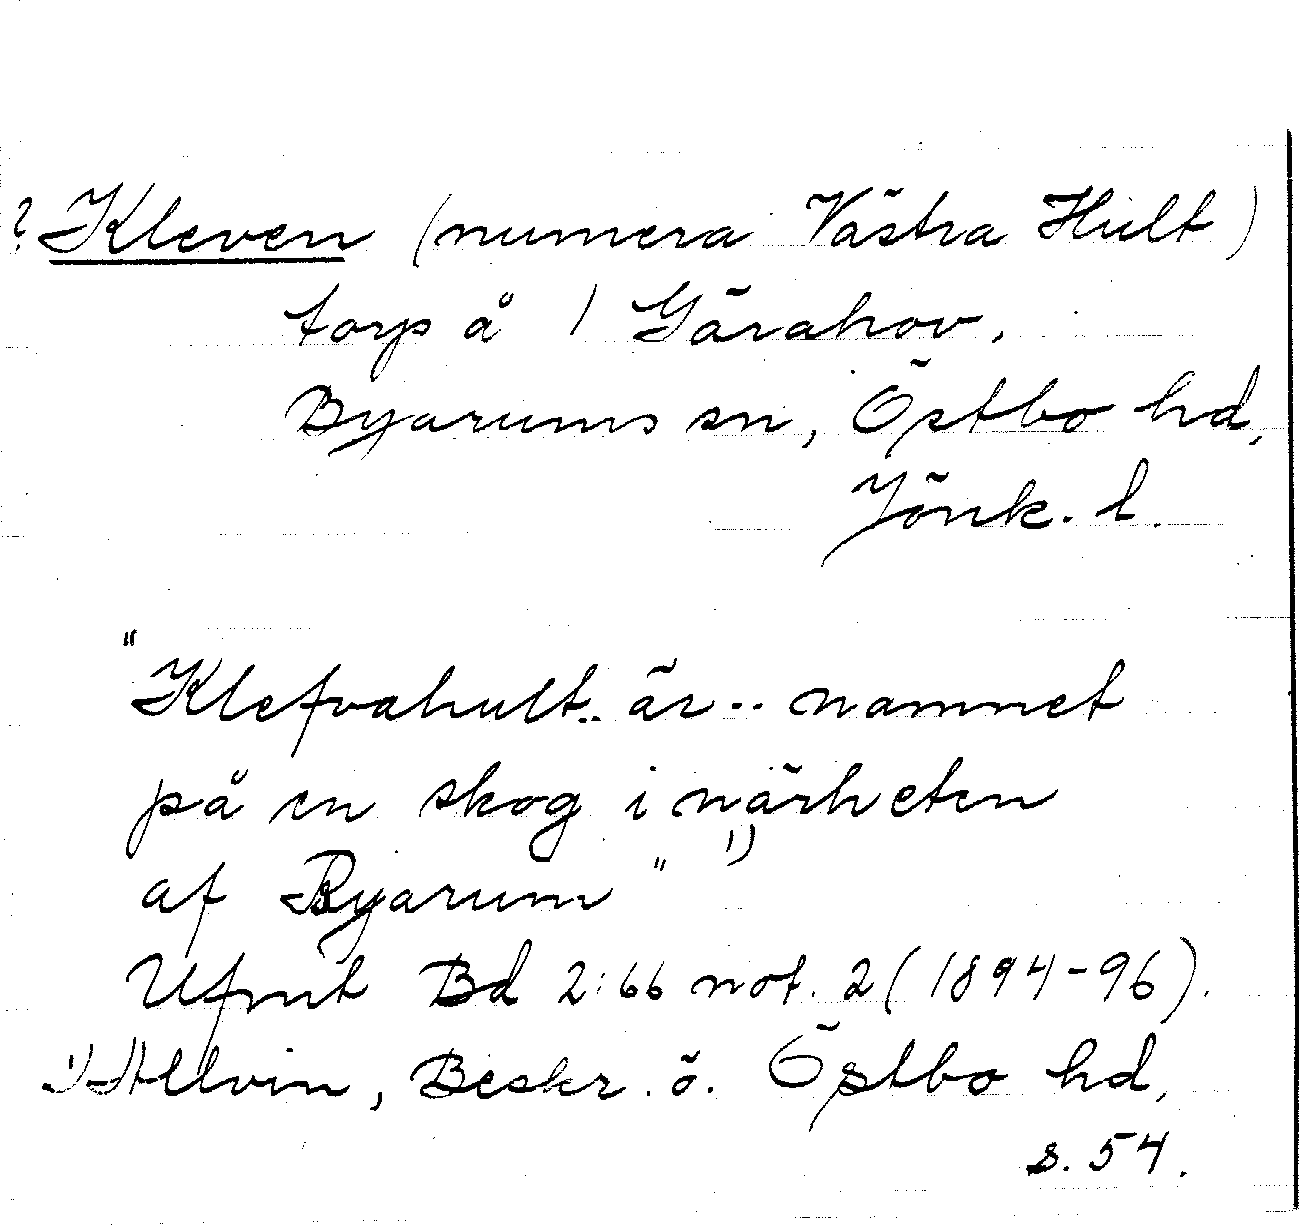 ? Kleven (numera Västra Hult)
torp å 1 Gärahov,
Byarums sn, Östbo hd,
Jönk. l.
"Klefvahult.. är .. namnet
på en skog i närheten
af Byarum" 1)
Ufmt Bd 2:66 not. 2 (1894-96).
1) Allvin, Beskr. ö. Östbo hd,
s. 54.